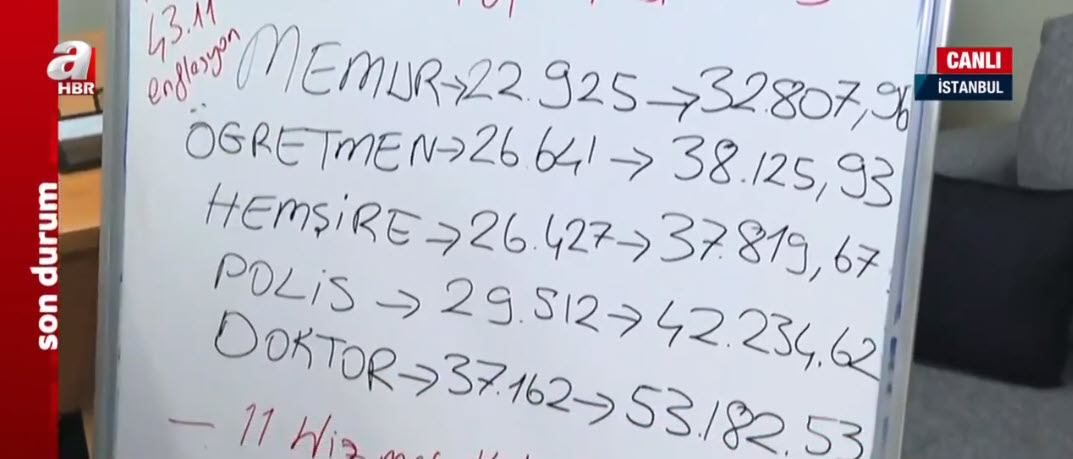 43.11
englasyon
MEMUR→22.925→32.807,96
ÖGRETMEN→26.641→38.125,93
HEMŞİRE→26.427→37.819,67
POLİS→29.512→42.234,62
DOKTOR→37.162→53.182.53
- 11
a
HBR
son durum
CANLI
İSTANBUL